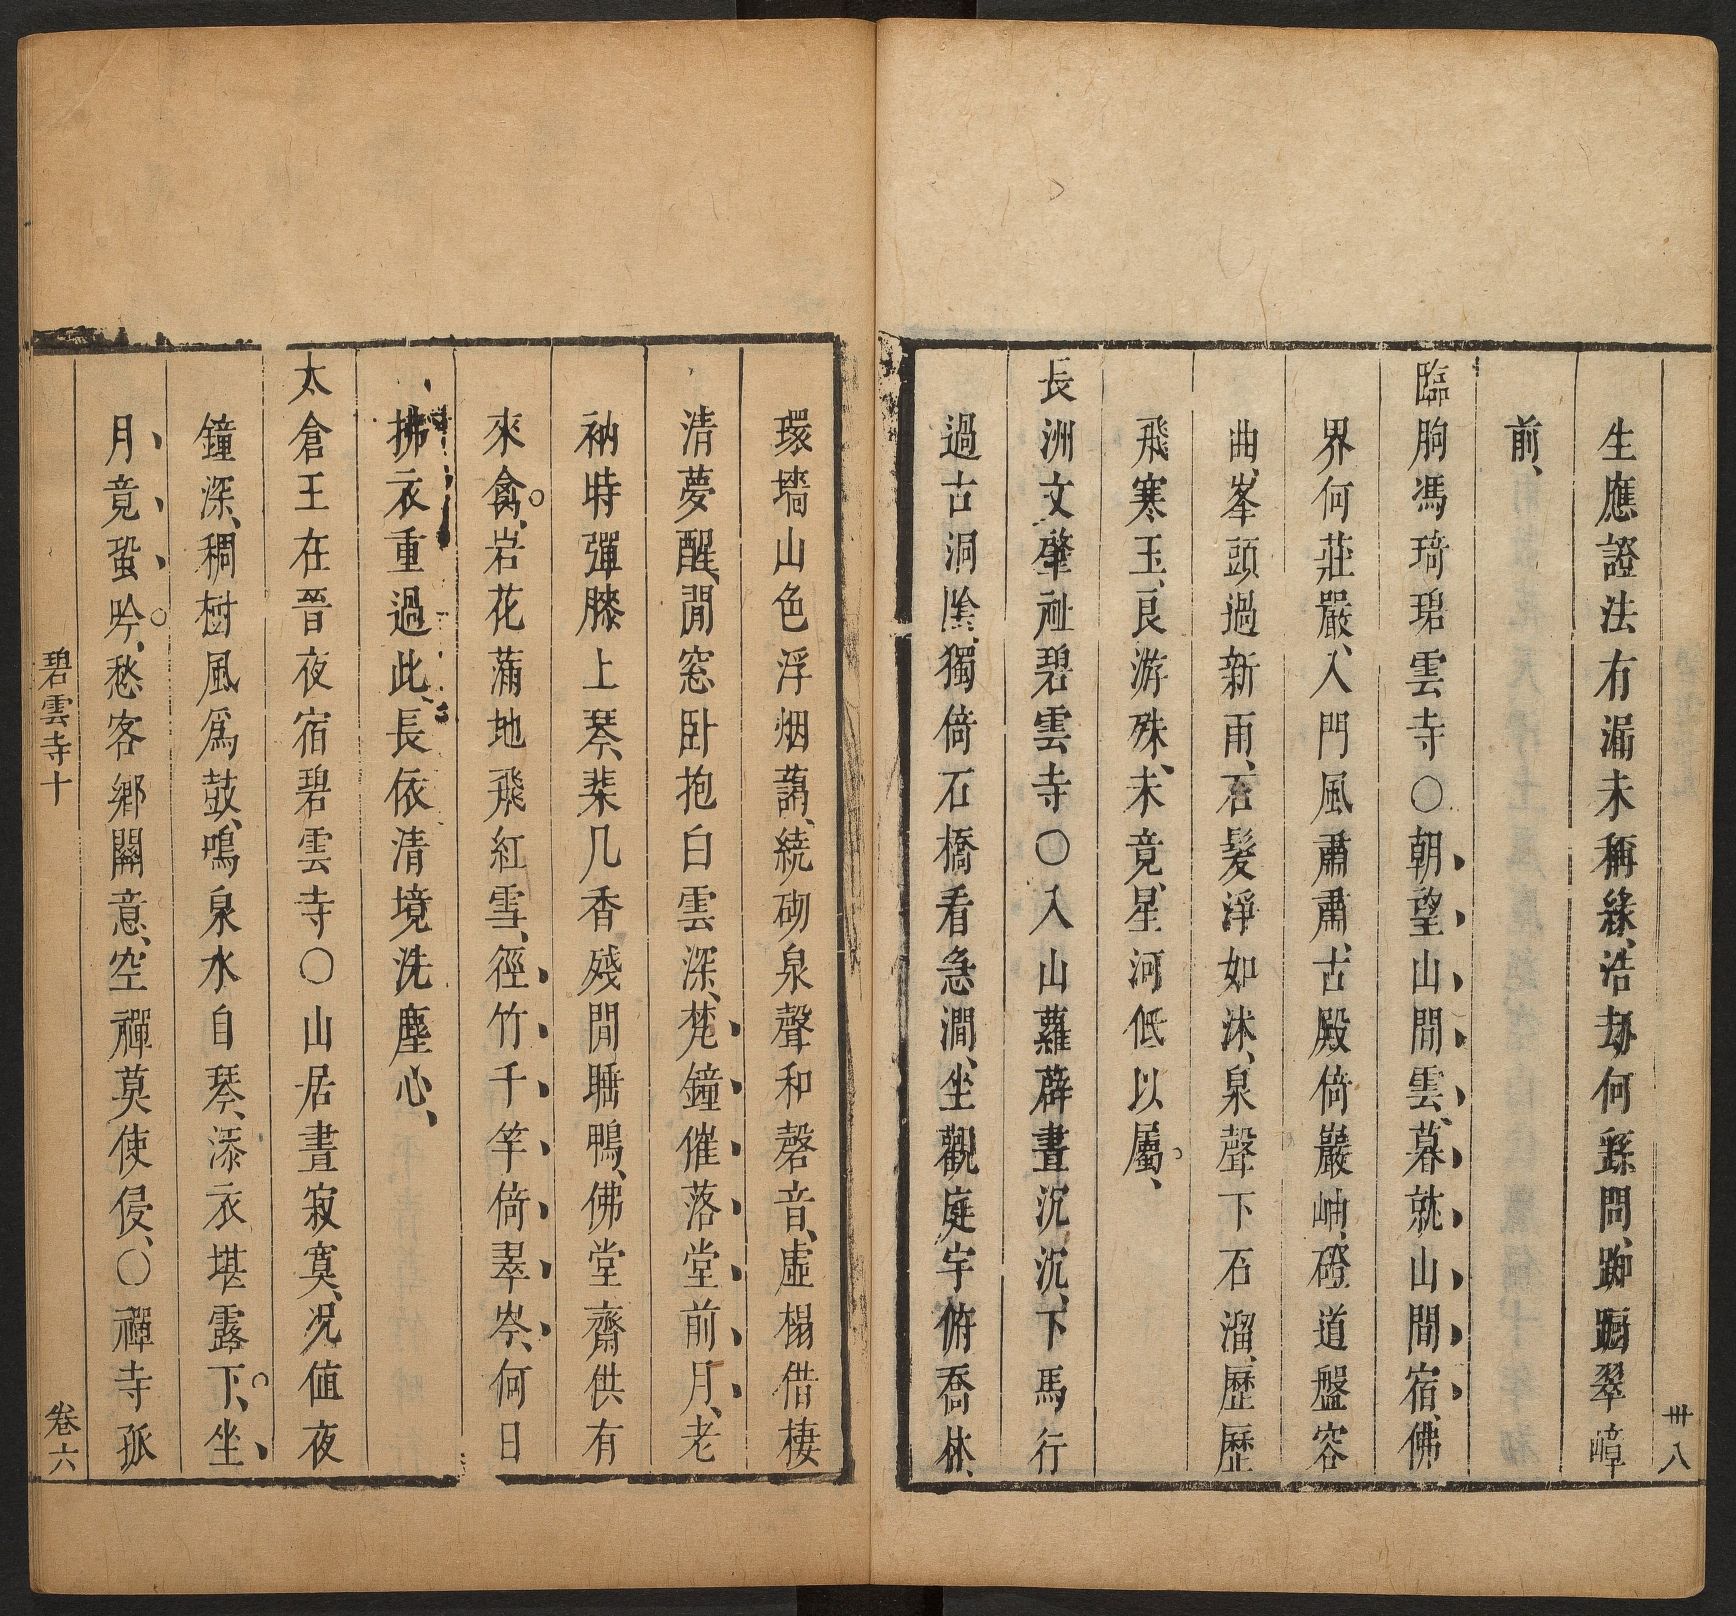 卅八
生應證法有漏未稱緣、浩劫何繇問、踟蹰翠嶂
前、
臨朐馮琦碧雲寺○朝望山間雲、暮就山間宿、佛
界何莊嚴、入門風肅肅、古殿倚巖岫、磴道盤容
曲、峯頭過新雨、石髮淨如沐、泉聲下石溜、歷歷
飛寒玉、良游殊未竟、星河低以屬、
長洲文肇祉碧雲寺○入山蘿薜晝沉沉、下馬行
過古洞陰、獨倚石橋看急澗、坐觀庭宇俯喬林、
環墻山色浮烟藹、繞砌泉聲和磬音、虛榻借棲
清夢醒、閒窓卧抱白雲深、梵鐘催落堂前月、老
衲時彈膝上琴、棐几香殘閒睡鴨、佛堂齋供有
來禽、岩花滿地飛紅雪、徑竹千竿倚翠岑、何日
拂衣重過此、長依清境洗塵心、
太倉王在晉夜宿碧雲寺○山居晝寂寞、况值夜
鐘深、稠樹風爲鼓、鳴泉水自琴、添衣堪露下、坐
月竟蛩吟、愁客鄉關意、空禪莫使侵、○禪寺孤
碧雲寺十
卷六